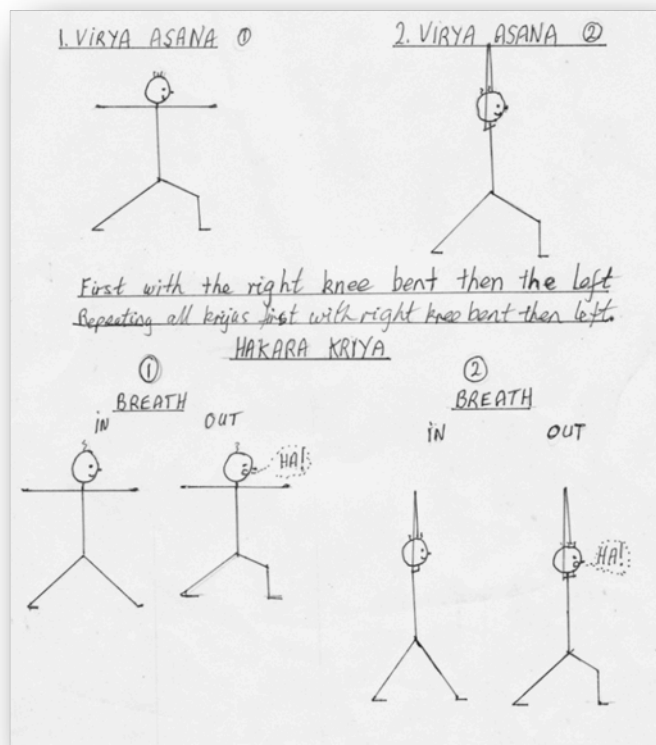 1. VIRYA ASANA ①
2. VIRYA ASANA ②
First with the right knee bent then the left
Repeating all krijas first with right knee bent then left.
HAKARA KRIYA
①
BREATH
IN OUT
HA!
②
BREATH
IN OUT
HA!